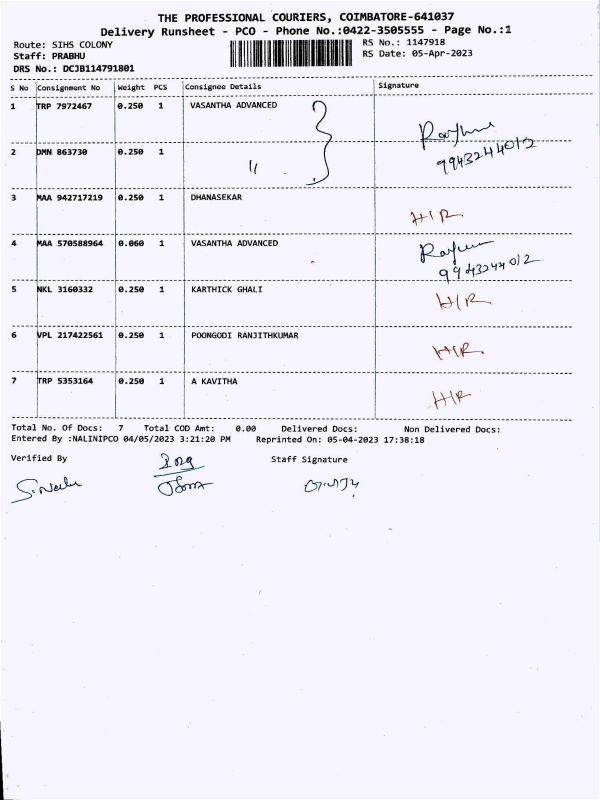 THE PROFESSIONAL COURIERS, COIMBATORE-641037
Delivery Runsheet - PCO - Phone No.:0422-3505555 - Page No.:1
Route: SIHS COLONY RS No.: 1147918
Staff: PRABHU RS Date: 05-Apr-2023
DRS No.: DCJB114791801
S No Consignment No Weight PCS Consignee Details Signature
1 TRP 7972467 0.250 1 VASANTHA ADVANCED
2 DMN 863730 0.250 1 "
9943244012
3 MAA 942717219 0.250 1 DHANASEKAR H/R
4 MAA 570588964 0.060 1 VASANTHA ADVANCED
9943244012
5 NKL 3160332 0.250 1 KARTHICK GHALI H/R
6 VPL 217422561 0.250 1 POONGODI RANJITHKUMAR H/R
7 TRP 5353164 0.250 1 A KAVITHA H/R
Total No. Of Docs: 7 Total COD Amt: 0.00 Delivered Docs: Non Delivered Docs:
Entered By :NALINIPCO 04/05/2023 3:21:20 PM Reprinted On: 05-04-2023 17:38:18
Verified By Staff Signature